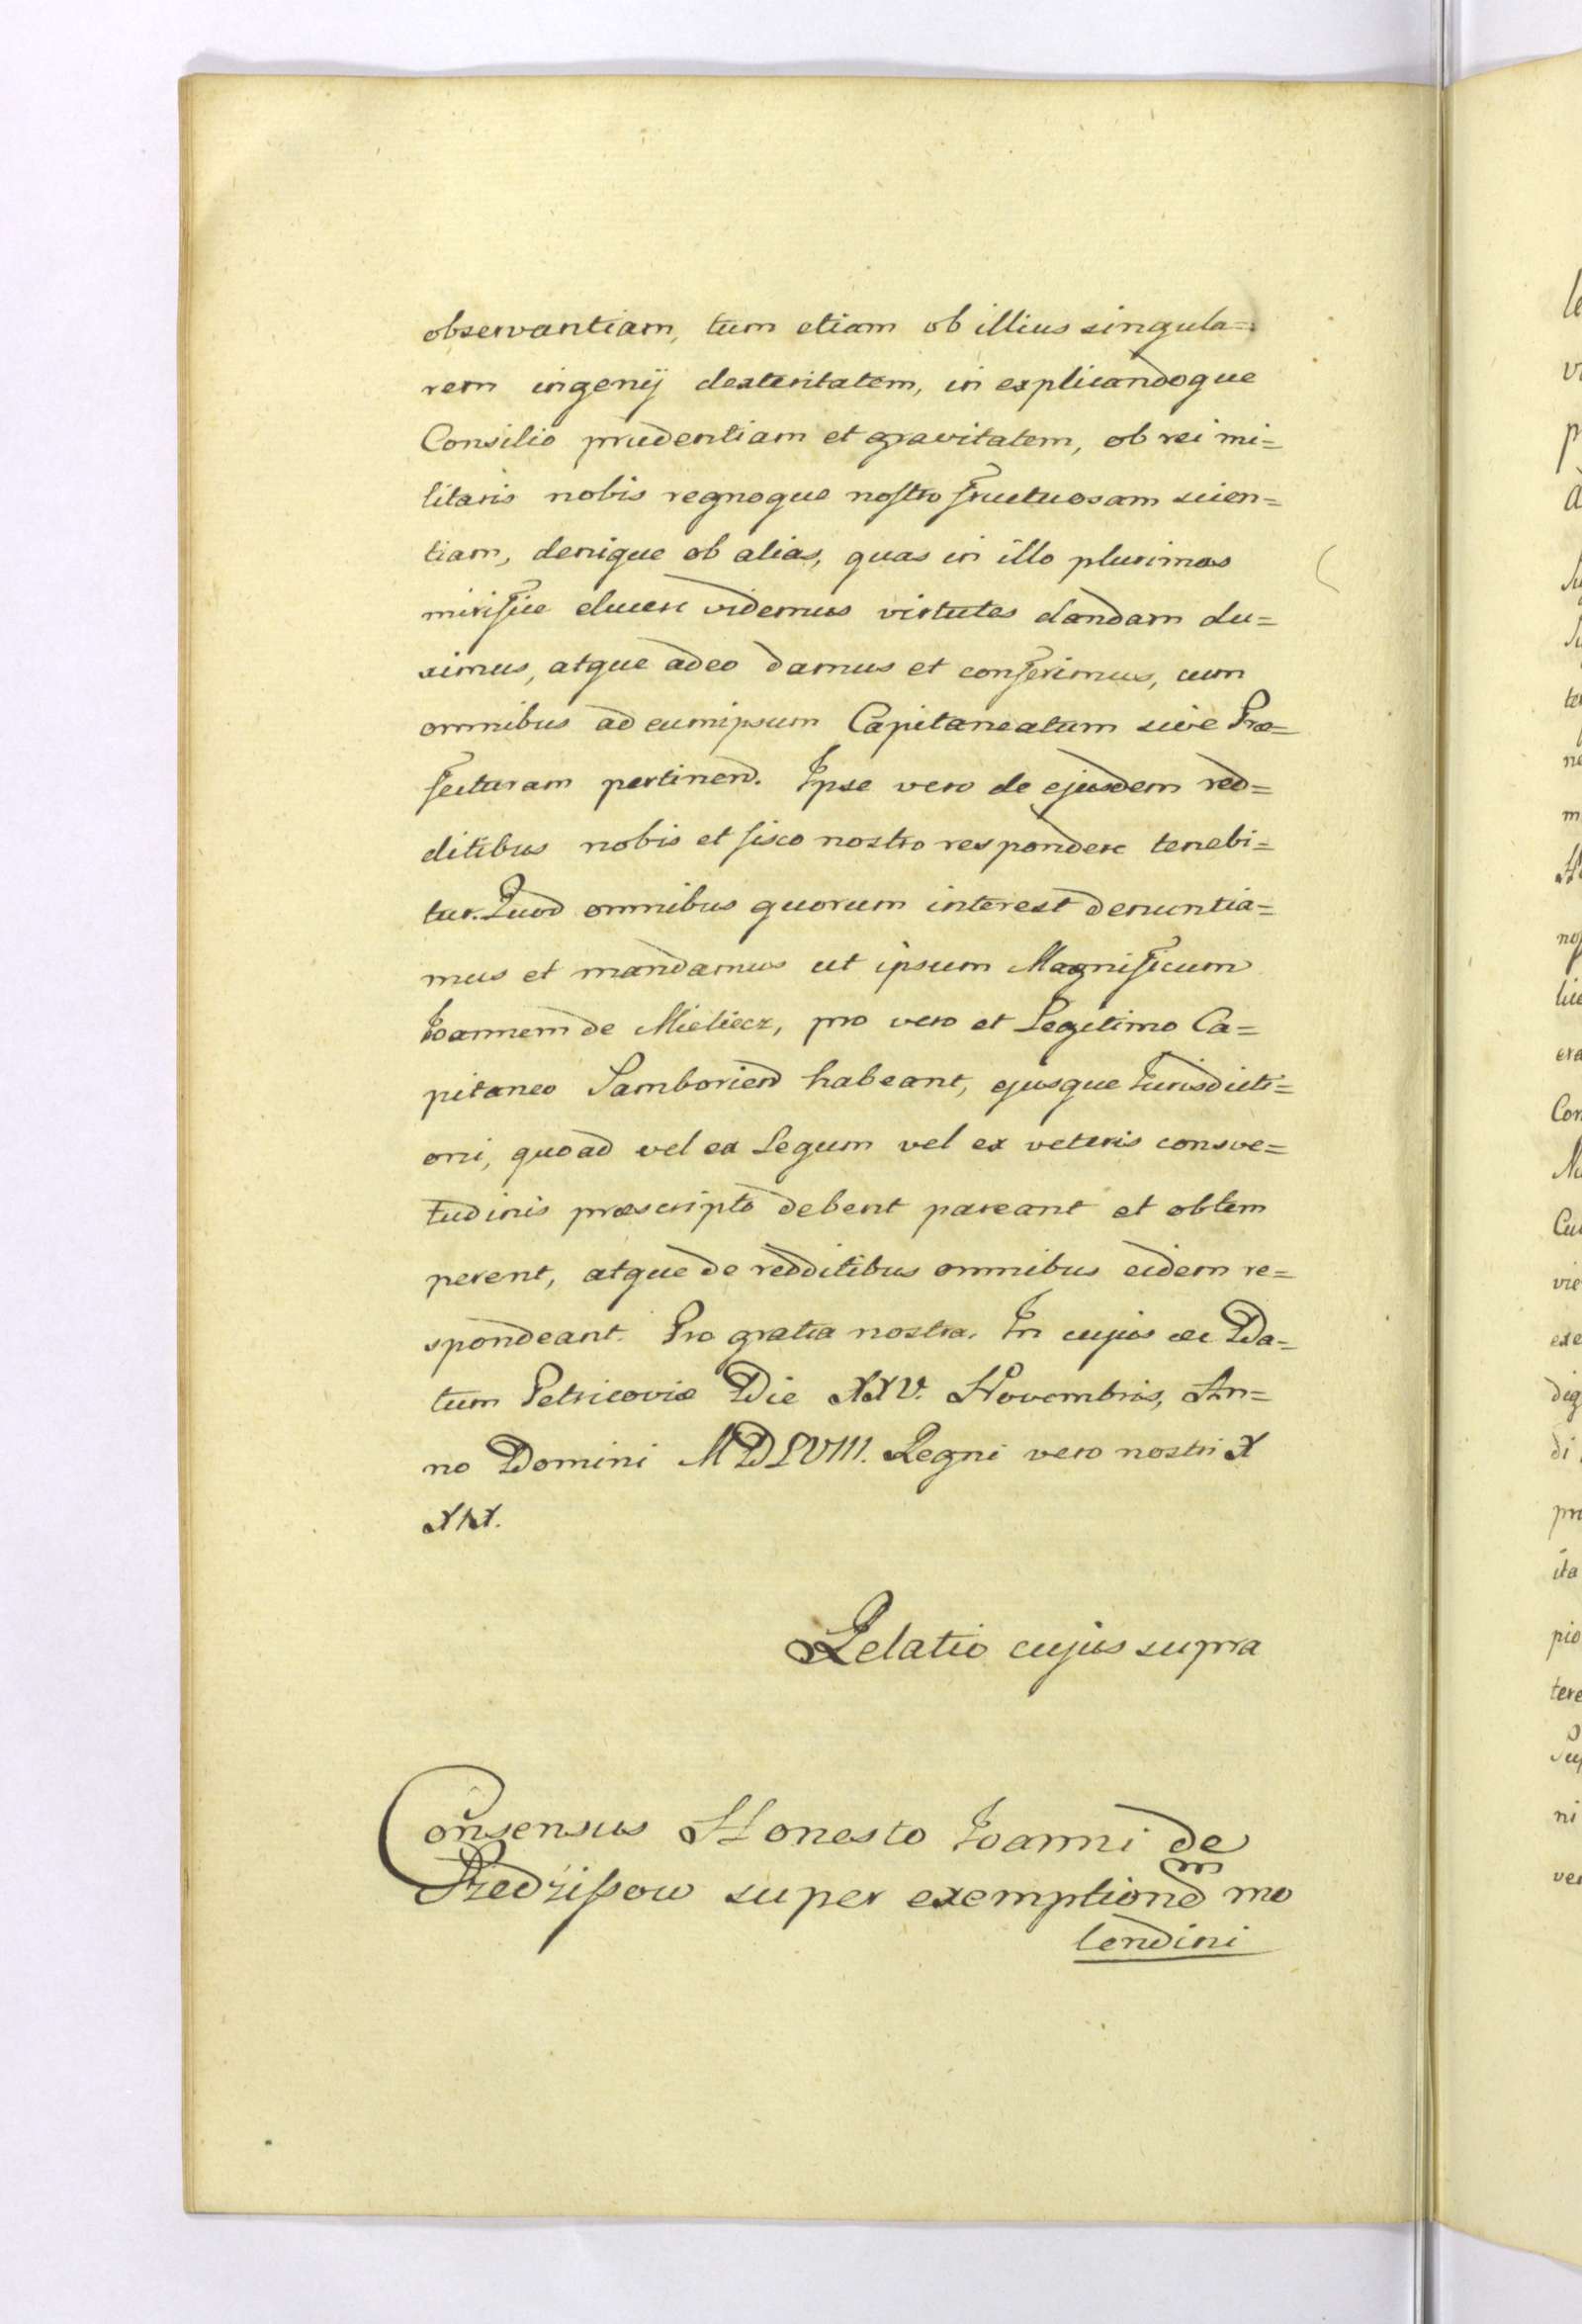 observantiam, tum etiam ob illius singula=
rem ingenij dexteritatem, in explicandoque
Consilio prudentiam et gravitatem, ob rei mi=
litaris nobis regnoque nostro fructuosam scien=
tiam, denique ob alias, quas in illo plurimas
mirifice elucere videmus virtutes dandam du=
ximus, atque adeo damus et conferimus, cum
omnibus ad eumipsum Capitaneatum sive Præ=
fecturam pertinend. Ipse vero de ejusdem red=
ditibus nobis et fisco nostro respondere tenebi=
tur. Quod omnibus quorum interest denuntia=
mus et mandamus ut ipsum Magnificum
Joannem de Mieliecz, pro vero et Legitimo Ca=
pitaneo Samborien habeant, ejusque Jurisdicti=
oni, quoad vel ex Legum vel ex veteris consve=
tudinis præscripto debent pareant et obtem
perent, atque de redditibus omnibus eidem re=
spondeant. Pro gratia nostra. In cujus Da=
tum Petricoviæ Die XXV. Novembris, An=
no Domini MDLVIII. Regni vero nostri X
XIX.
Relatio cujus supra
Consensus Honesto Joanni de
super exemptionem mo
lendini